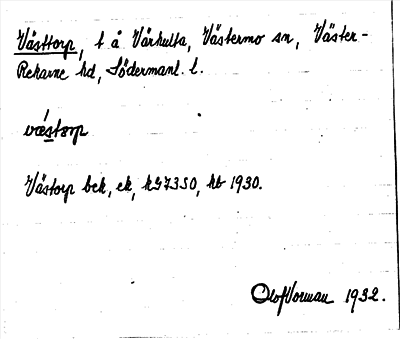 Västtorp, t å Vårhulta, Västermo sn, Väster-
Rekarne hd, Södermanl. l.
væstɔrp
Västorp bek, ek, kg 7350, hb 1930.
Olof Norman 1932.